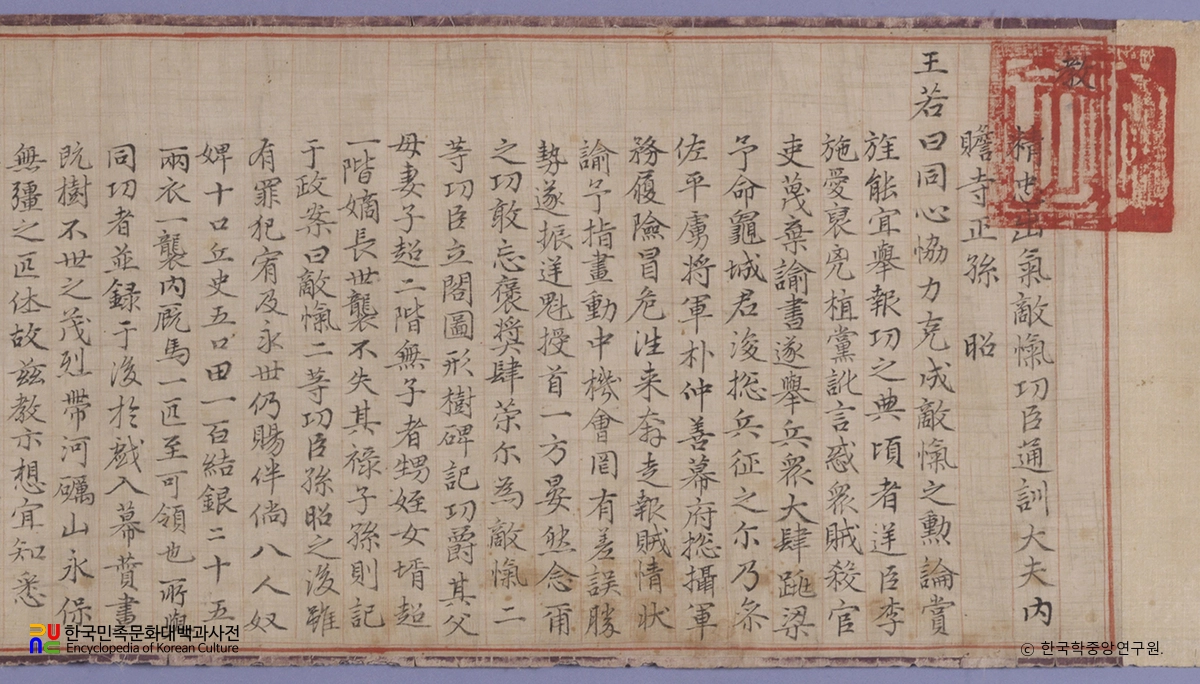 教
精忠出氣敵愾功臣通訓大夫內
贍寺正孫 昭
王若曰同心恊力克成敵愾之勳論賞
旌能宜舉報功之典頃者逆臣李
施愛裒兇植黨訛言惑衆賊殺官
吏蔑棄諭書遂舉兵衆大肆跳梁
予命龜城君浚揔兵征之尔乃叅
佐平虜將軍朴仲善幕府揔攝軍
務履險冒危往来奔走報賊情狀
諭予指畫動中機會罔有差誤勝
勢遂振逆魁授首一方晏然念爾
之功敢忘褒奬肆榮尔為敵愾二
等功臣立閣圖形樹碑記功爵其父
母妻子超二階無子者甥姪女壻超
一階嫡長世襲不失其祿子孫則記
于政案曰敵愾二等功臣孫昭之後雖
有罪犯宥及永世仍賜伴倘八人奴
婢十口丘史五口田一百結銀二十五
兩衣一襲內廐馬一匹至可領也所與
同功者並録于後於戲入幕賛畫
旣樹不世之茂烈帶河礪山永保
無彊之匹休故玆教示想宜知悉
한국민족문화대백과사전
Encyclopedia of Korean Culture
© 한국학중앙연구원.